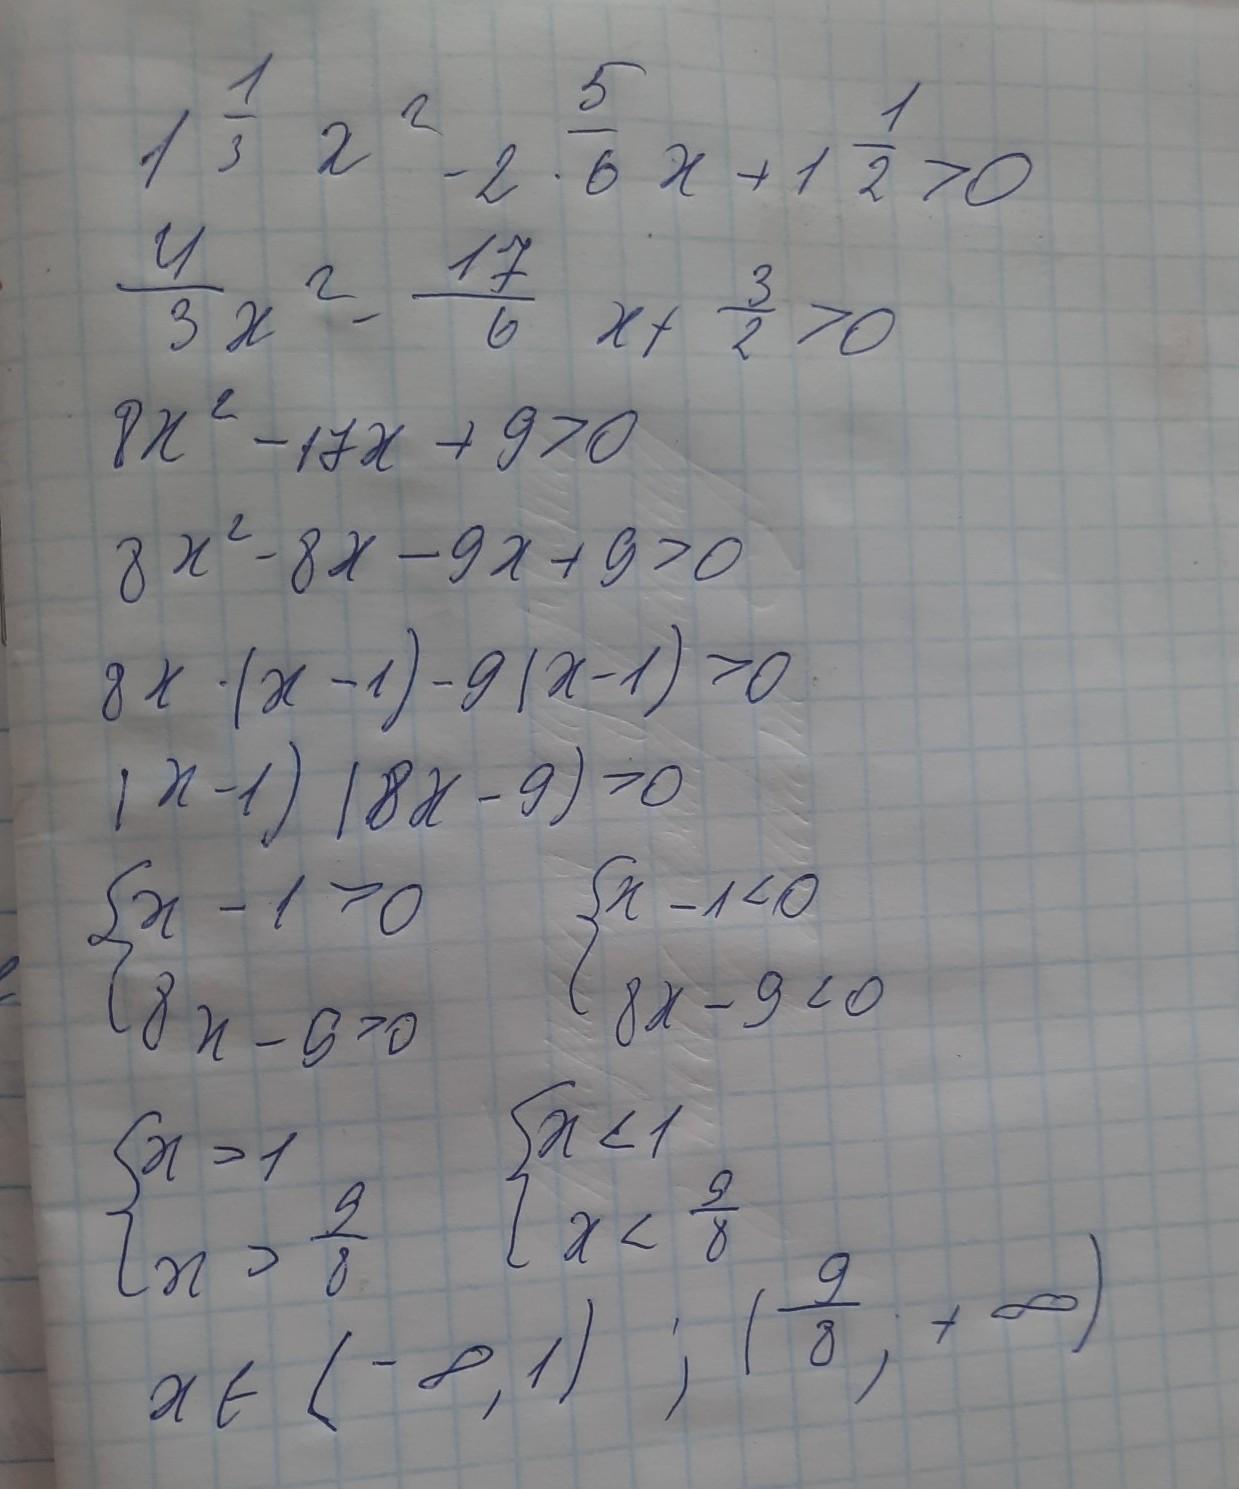 1 1/3 x² - 2 · 5/6 x + 1 1/2 > 0
4/3 x² - 17/6 x + 3/2 > 0
8x² - 17x + 9 > 0
8x² - 8x - 9x + 9 > 0
8x · (x - 1) - 9(x - 1) > 0
(x - 1) (8x - 9) > 0
{ x - 1 > 0 { x - 1 < 0
8x - 9 > 0 8x - 9 < 0
{ x > 1 { x < 1
x > 9/8 x < 9/8
x ∈ (-∞, 1) ; (9/8 ; +∞)